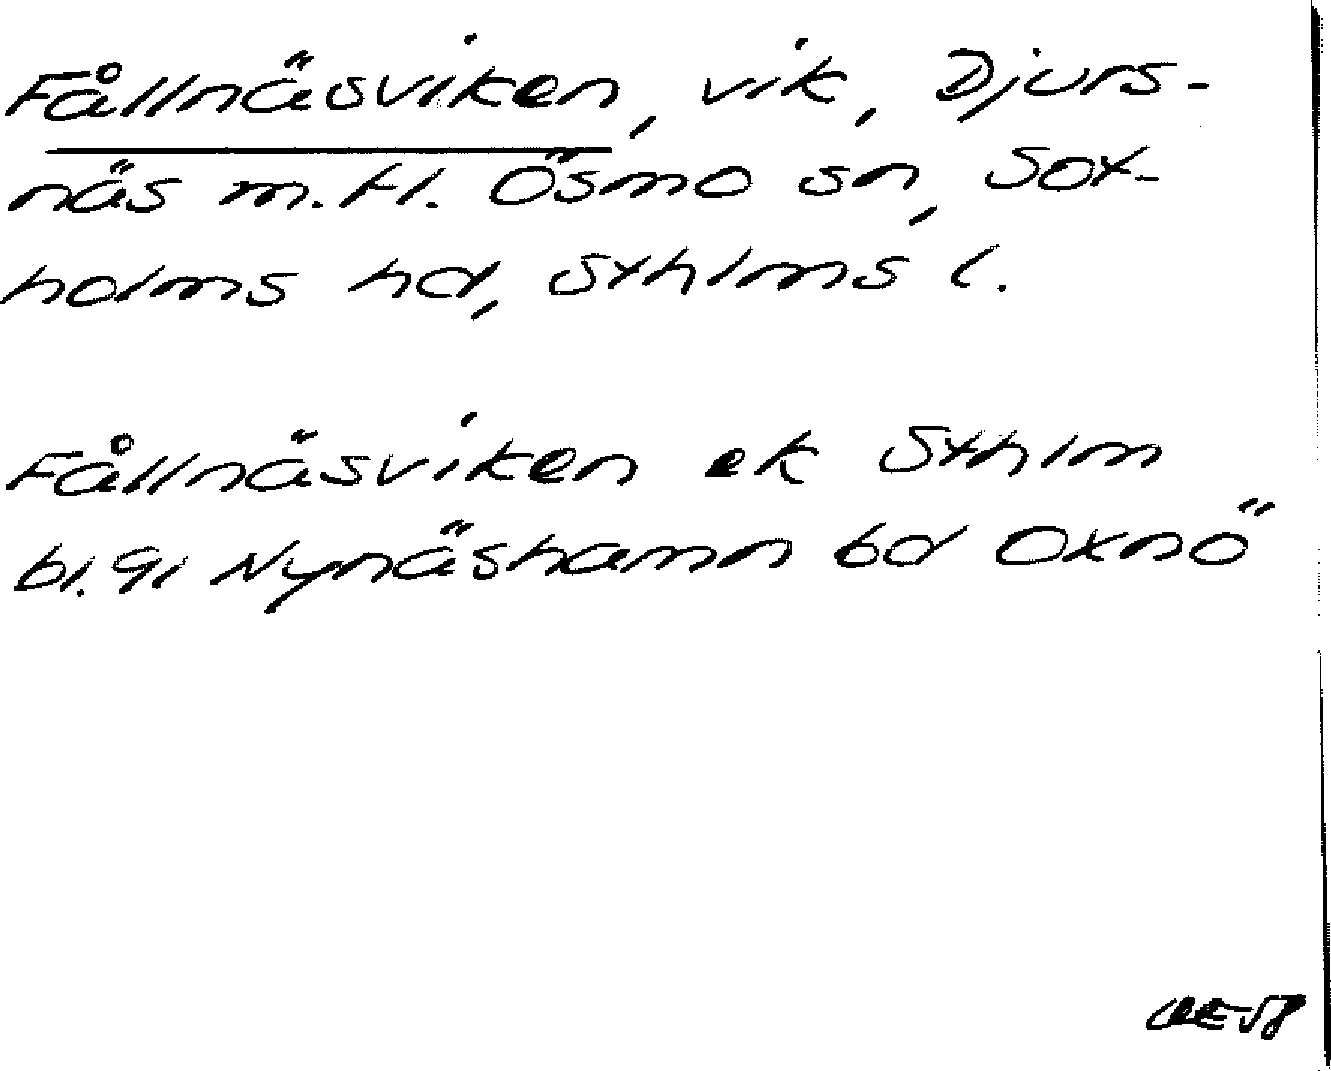 Fållnäsviken, vik, Djurs-
näs m.fl. Ösmo sn, Sot-
holms hd, Sthlms l.
Fållnäsviken ek Sthlm
bl. 91 Nynäshamn bd Oxnö